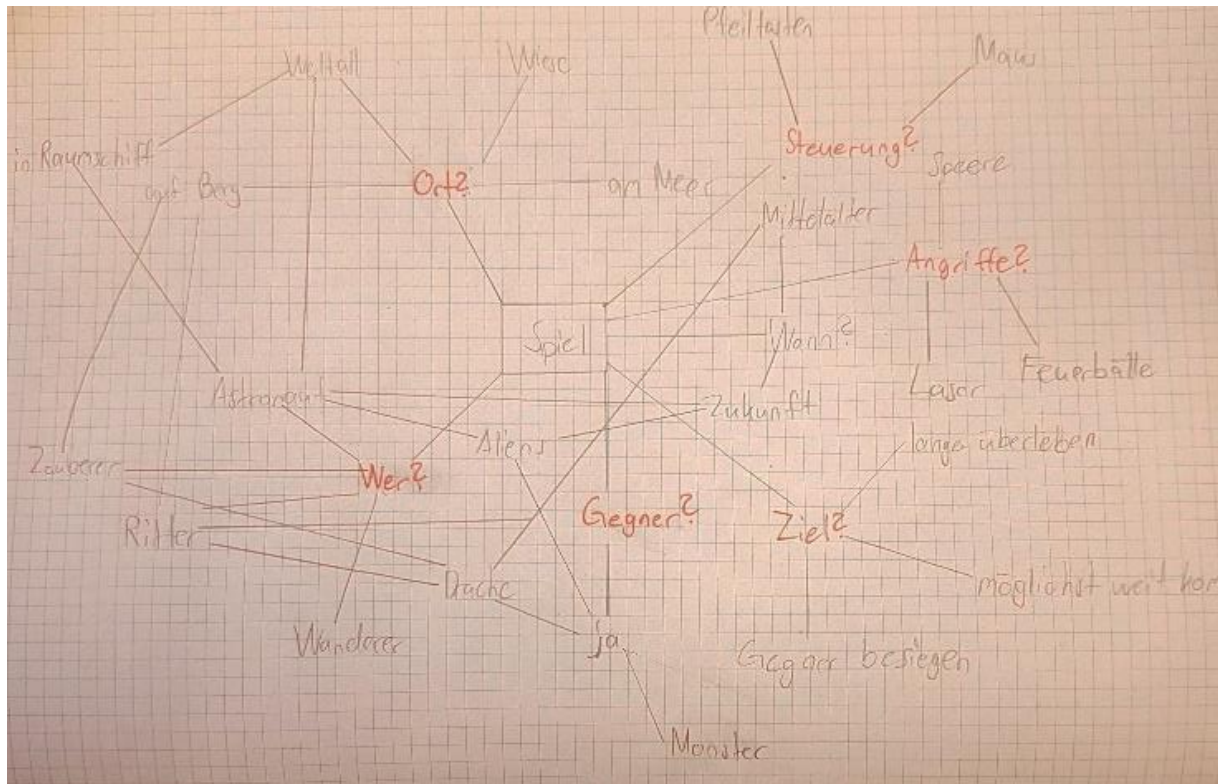 Pfeiltasten
Weltall
Wiese
Maus
Steuerung?
in Raumschiff
Speere
auf Berg
Ort?
am Meer
Mittelalter
Angriffe?
Spiel
Wann?
Laser
Feuerbälle
Astronaut
Zukunft
Aliens
lange überleben
Zauberer
Wer?
Ritter
Gegner?
Ziel?
Drache
möglichst weit kom
Wanderer
ja
Gegner besiegen
Monster